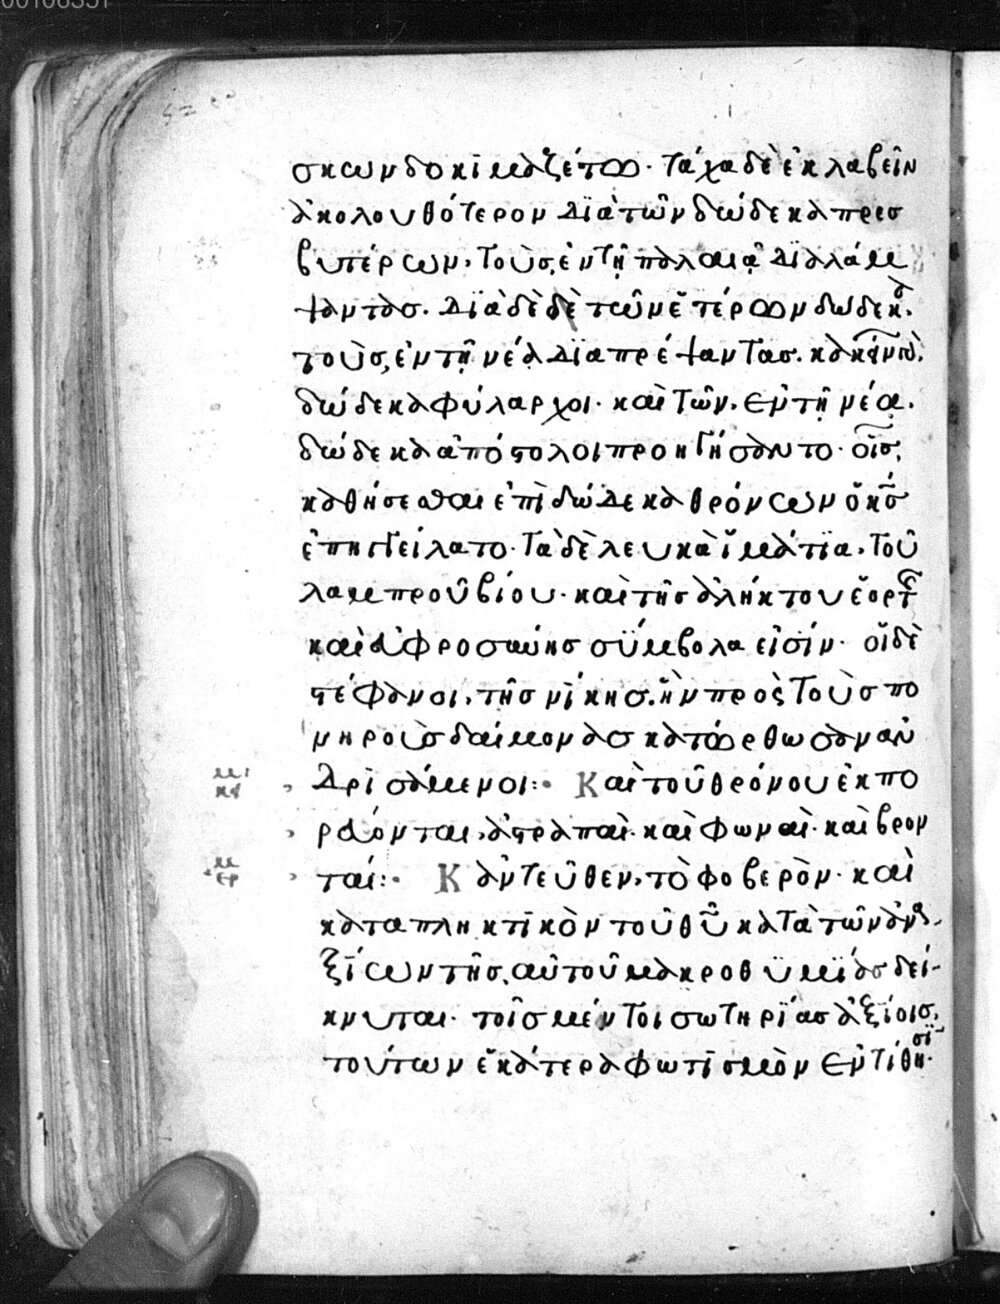 σκων δοκιμαζέτω· τάχα δὲ ἐκλαβεῖν
ἀκολουθότερον διὰ τῶν δώδεκα πρεσ
βυτέρων, τοὺς ἐν τῇ παλαιᾷ διαλάμ
ψαντας. διὰ δὲ δὲ τῶν ἑτέρων δώδεκα.
τοὺς, ἐν τῇ νέᾳ διαπρέψαντας.
δώδεκα φύλαρχοι· καὶ τῶν, ἐν τῇ νέᾳ.
δώδεκα ἀπόστολοι προηγήσαντο· οἷς,
καθήσεσθαι ἐπὶ δώδεκα θρόνων ὁ κς
ἐπηγγείλατο· Τὰ δὲ λευκὰ ἱμάτια, τοῦ
λαμπροῦ βίου· καὶ τῆς ἀλήκτου ἑορτ
καὶ εὐφροσύνης σύμβολα εἰσίν· οἱ δὲ
στέφανοι, τῆς νίκης. ἣν πρὸς τοὺς πο
νηροὺς δαίμονας κατώρθωσαν ἀν
δρισάμενοι:· Καὶ τοῦ θρόνου ἐκπο
ρεύονται, ἀστραπαὶ· καὶ φωναὶ· καὶ βρον
ταί:· Κἀντεῦθεν, τὸ φοβερὸν· καὶ
καταπληκτικὸν τοῦ θῦ κατὰ τῶν ἀνα
ξίων τῆς αὐτοῦ μακροθυμίας δεί-
κνυται· τοῖς μέντοι σωτηρίας ἀξίοις,
τούτων ἑκάτερα φωτισμὸν ἐντίθησι·